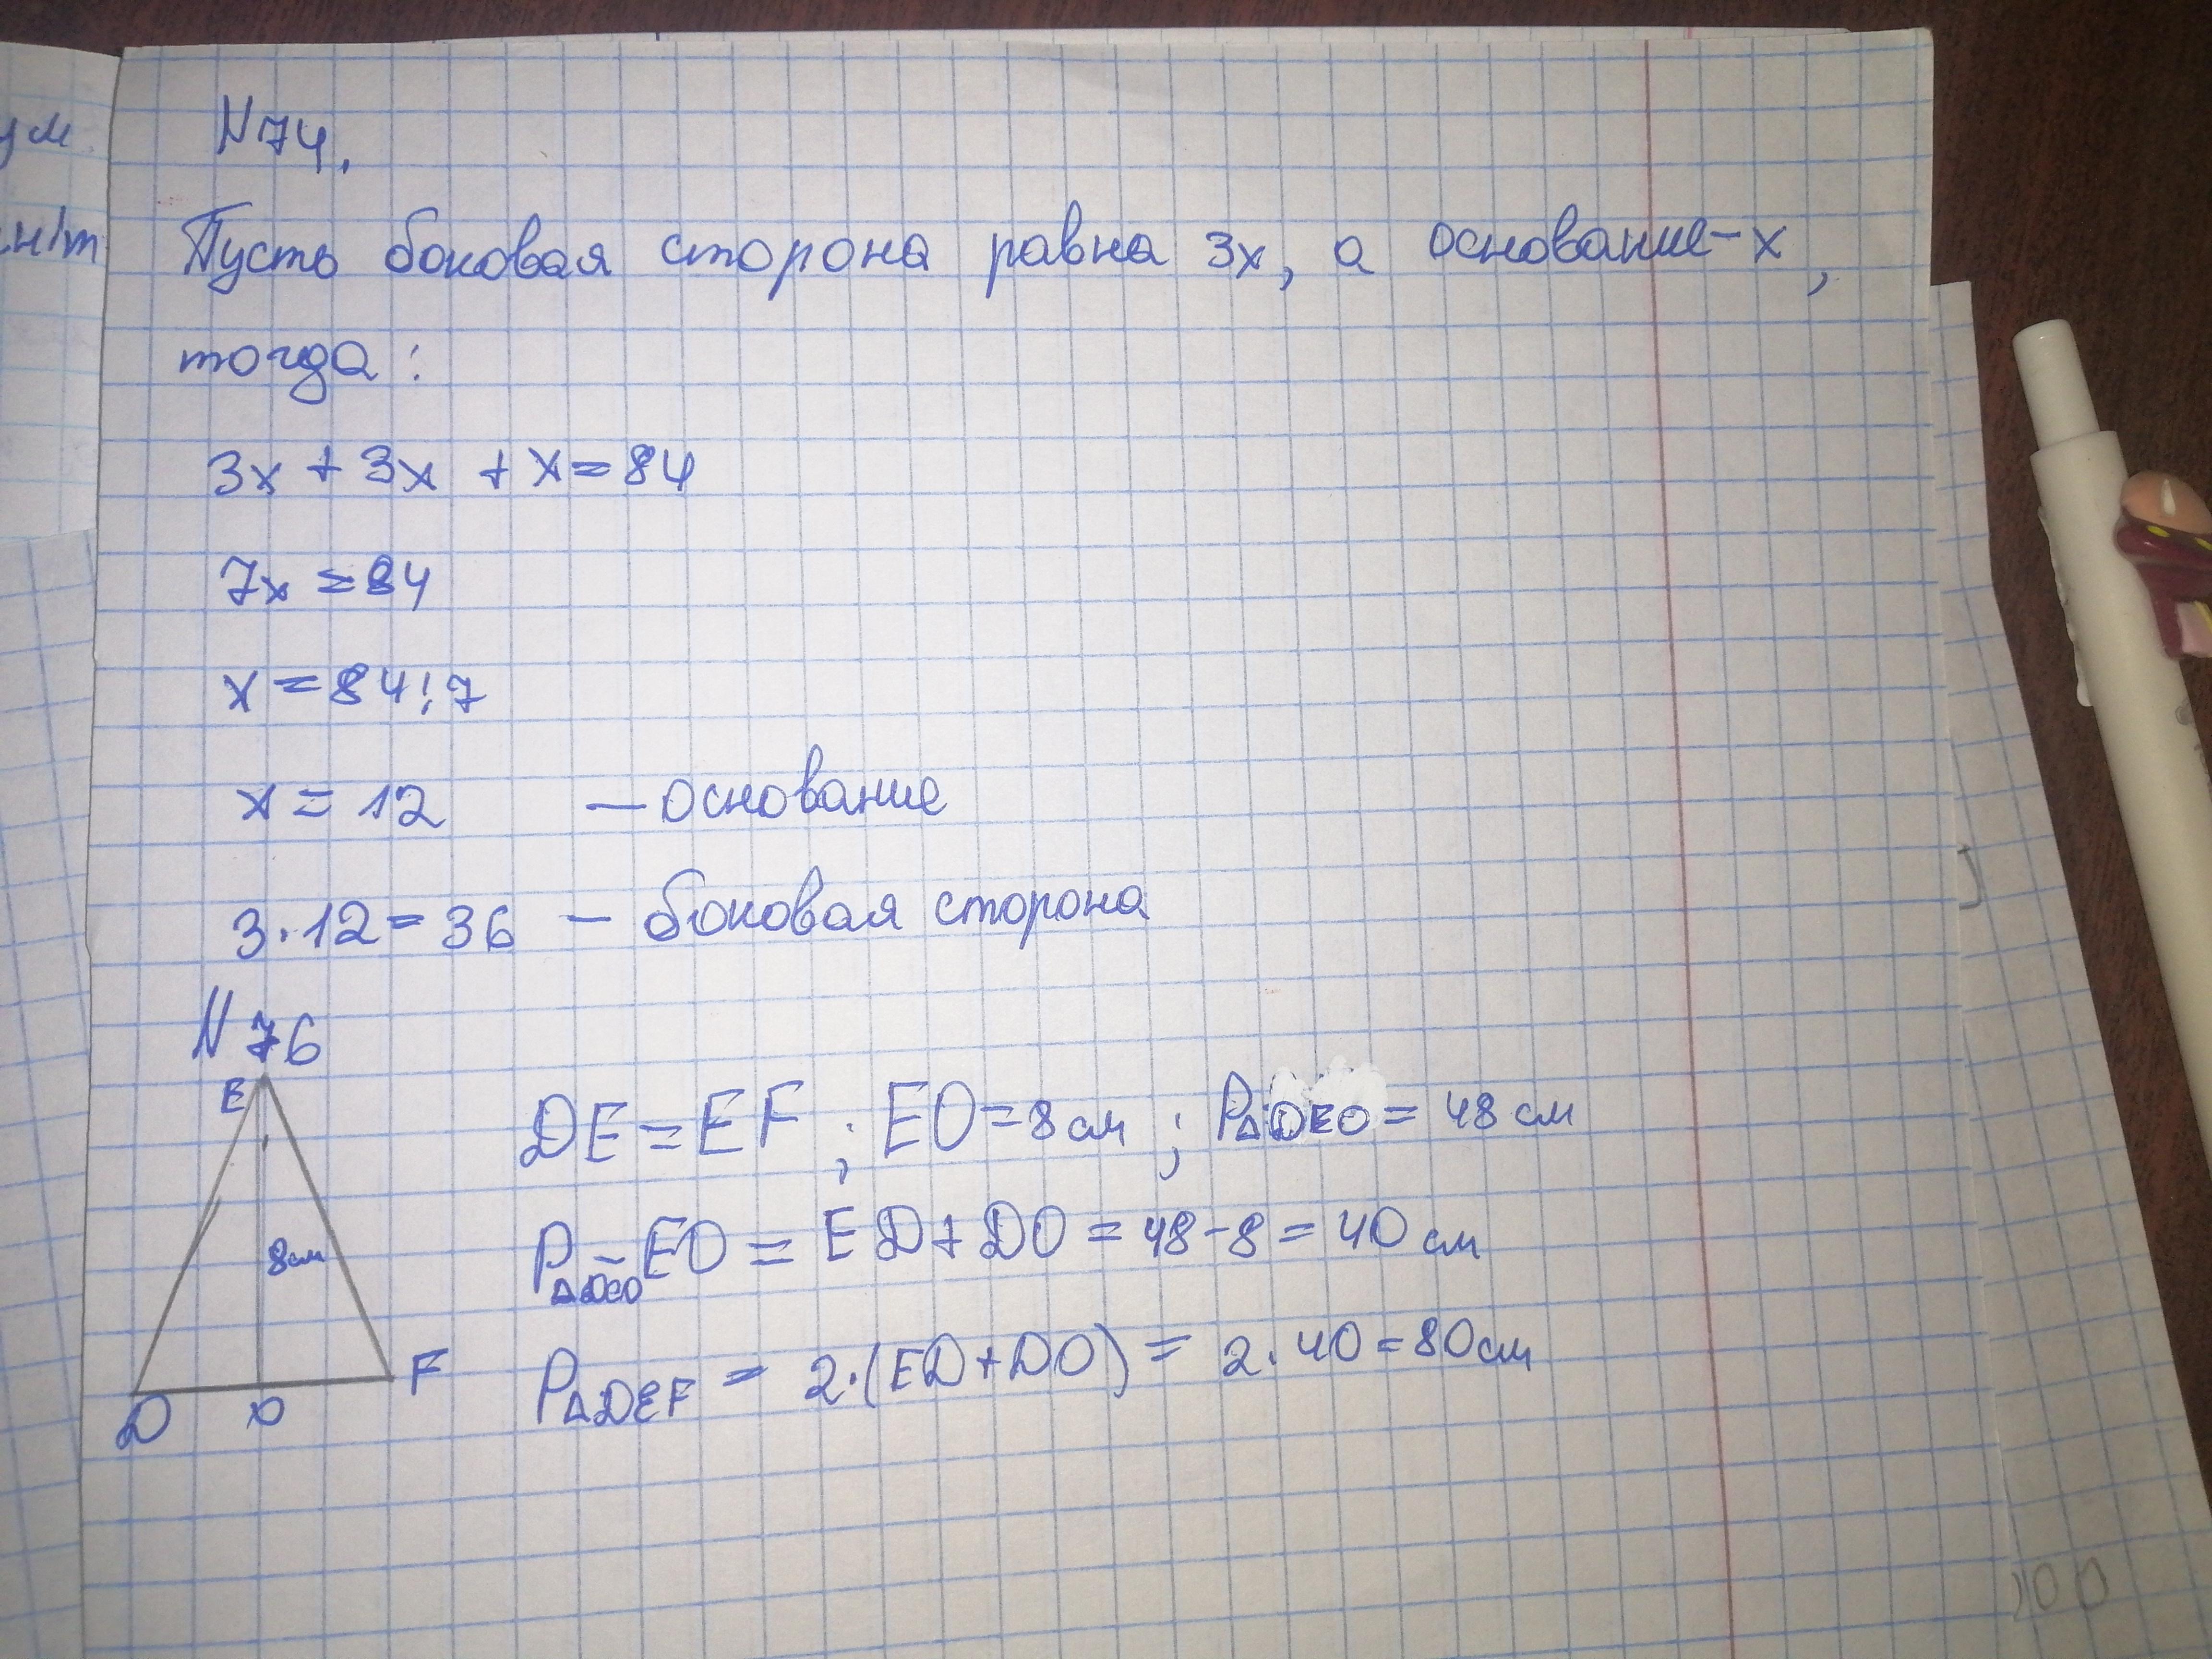 N74.
Пусть боковая сторона равна 3x, а основание - x,
тогда:
3x + 3x + x = 84
7x = 84
x = 84:7
x = 12 — основание
3·12 = 36 — боковая сторона
N76
E
8см
D O F
DE = EF ; EO = 8 см ; P△DEO = 48 см
P△DEO - EO = ED + DO = 48 - 8 = 40 см
P△DEF = 2·(ED + DO) = 2·40 = 80 см